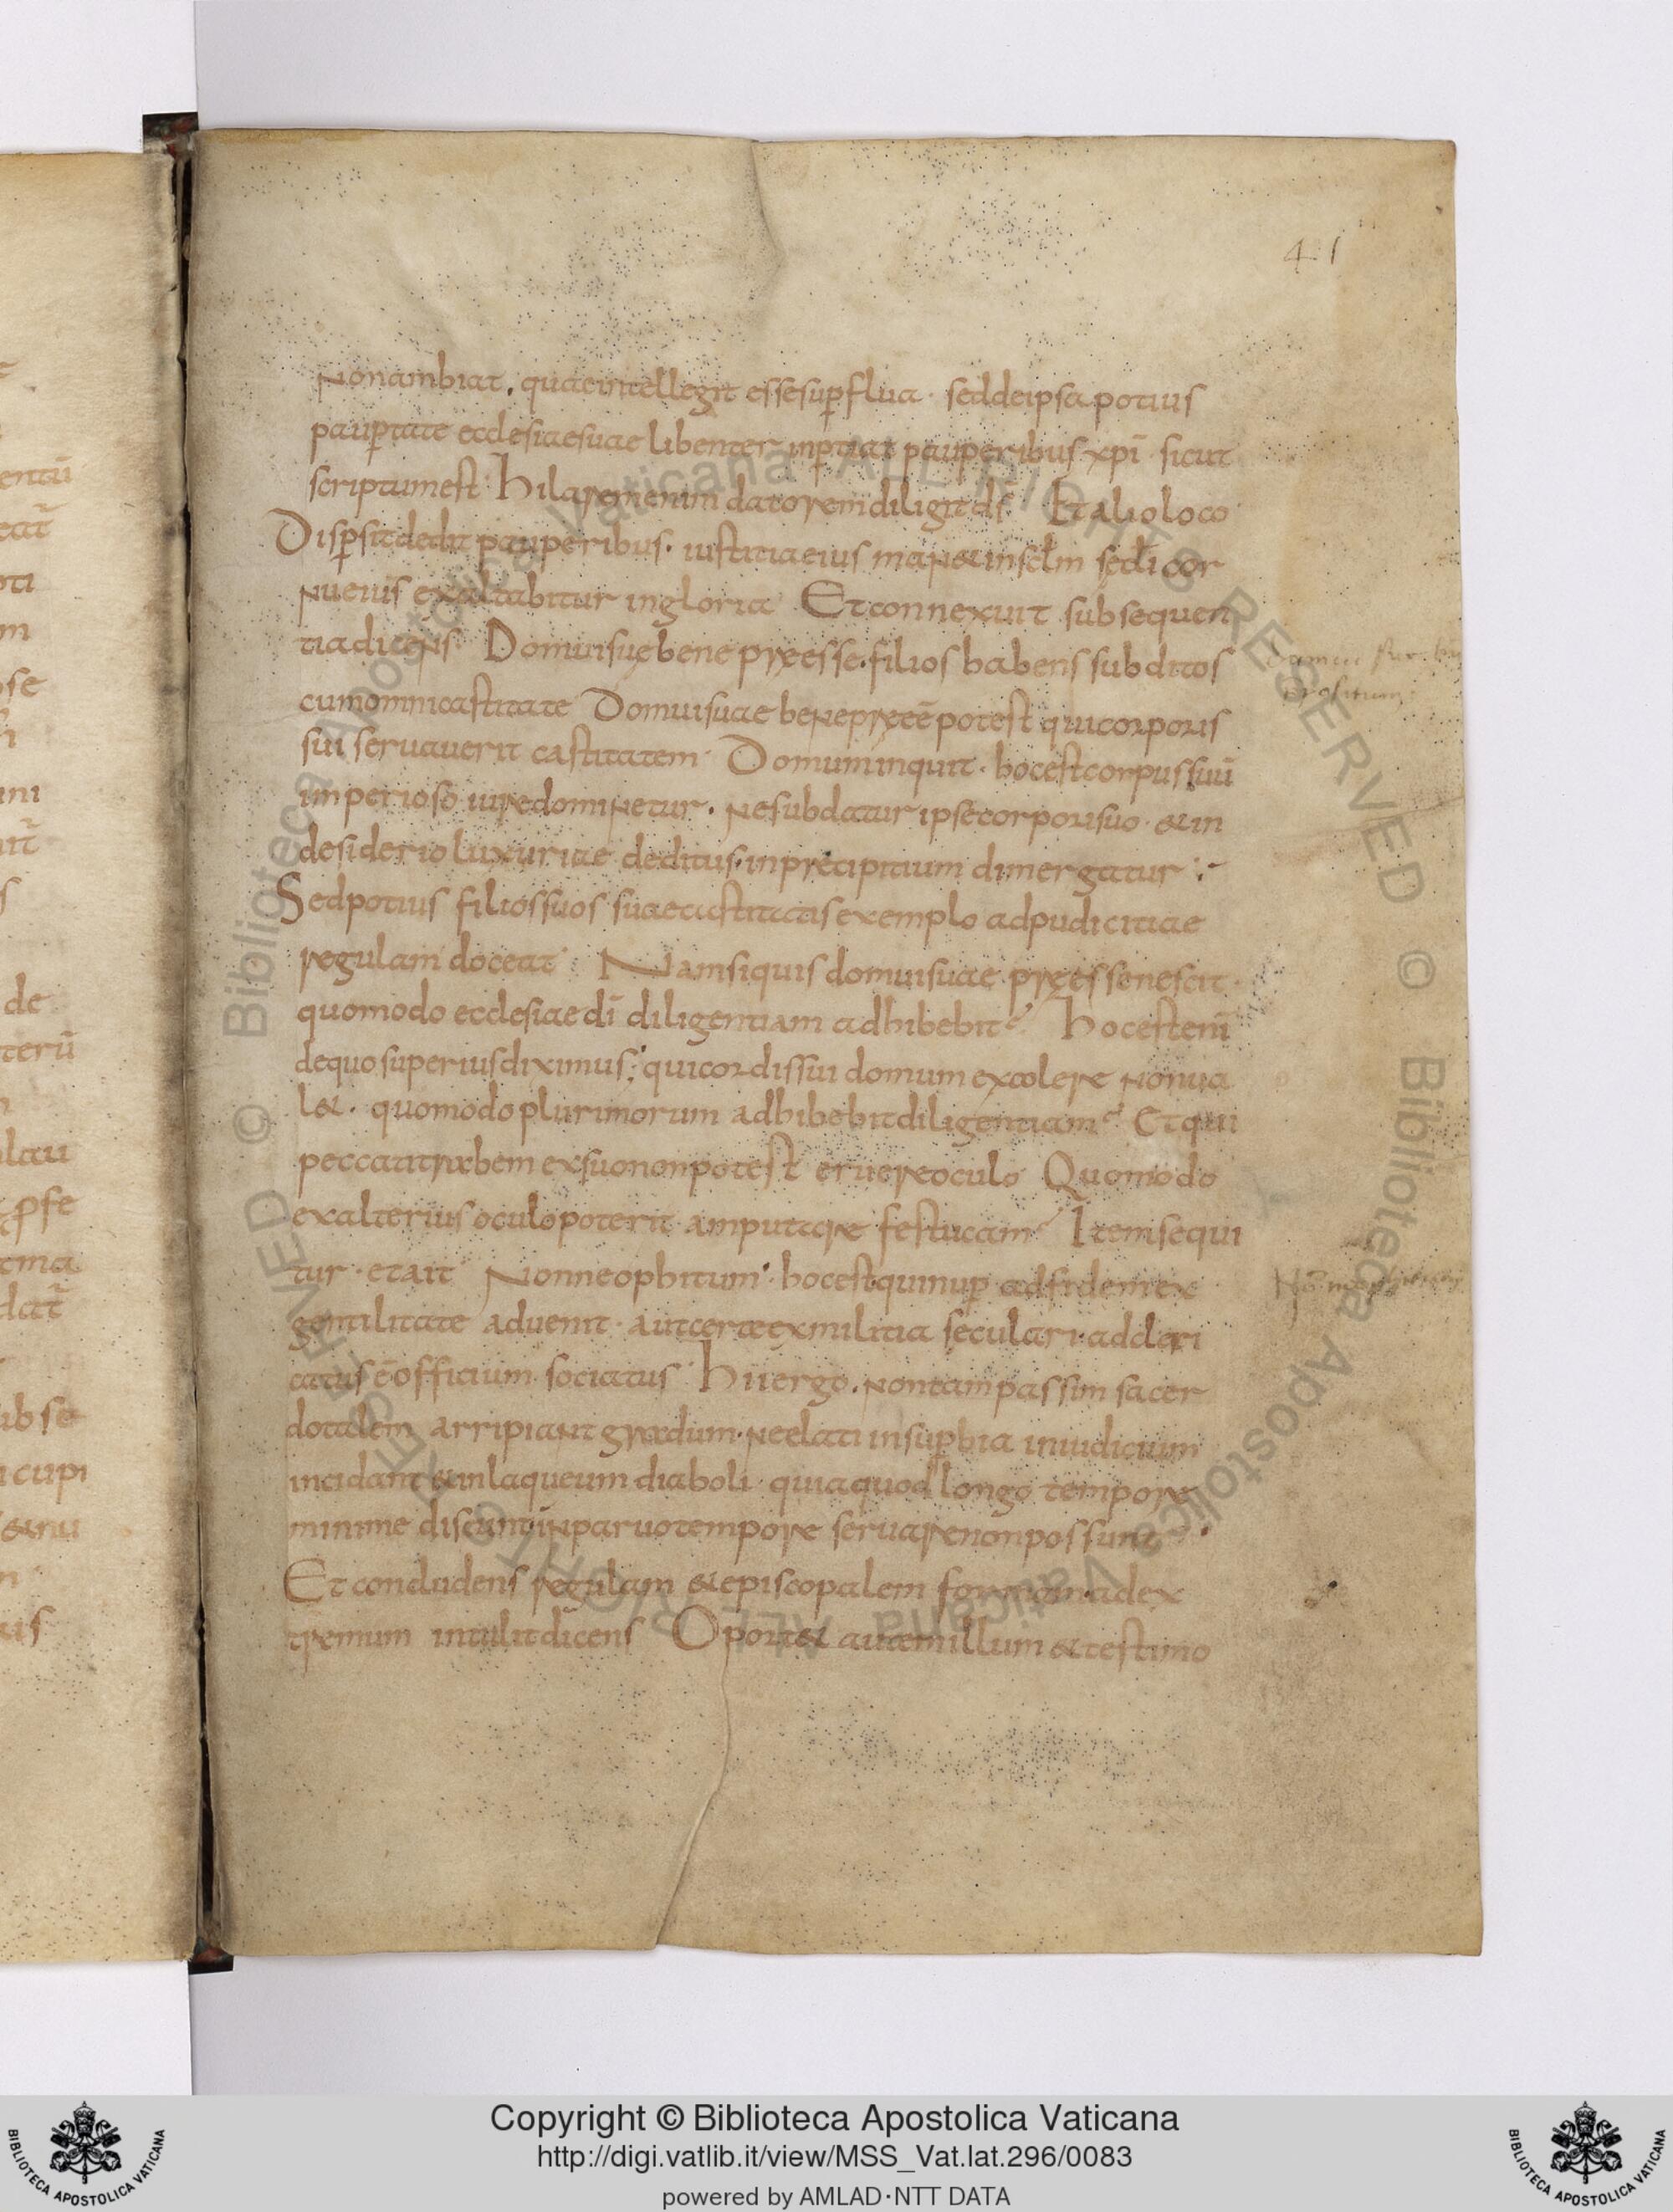 41
Nonambiat. quaeintellegit essesup̄flua. seddeipsa potius
paup̄tate ecclesiaesuae libenter inp̄tiat pauperibus xp̄i. sicut
scriptumest hilaremenim datoremdiligitd̄s Et alioloco
Disp̄sitdedit pauperibus. iustitiaeius man&insc̄lm sc̄li cor
nueius exaltabitur ingloria Etconnexuit subsequen
tiadicens Domuisuę bene preesse. filios habens subditos
cumomnicastitate Domuisuae benepreeē potest quicorporis
sui servaverit castitatem. Domuminquit. hocestcorpussuū
imperioso iuredominetur. nesubdatur ipsecorporisuo. &in
desiderio luxuriae deditus. inprecipitium dimergatur :-
Sedpotius filiossuos suaecastitatisexemplo adpudicitiae
regulam doceat Namsiquis domuisuae preessenescit.
quomodo ecclesiae dī diligentiam adhibebit? hocestenī
dequosuperiusdiximus; quicordissui domum excolere nonva
l&. quomodo plurimorum adhibebitdiligentiam? Etqui
peccatitrabem exsuononpotest eruereoculo Quomodo
exalterius oculopoterit amputare festucam? Itemsequi
tur. etait Nonneophitum. hocestquinup̄ adfidemex
gentilitate advenit. autcerteexmilitia seculari. adcleri
catus ē officium sociatus hiiergo. nontampassim sacer
dotalem arripiant gradum. neelati insup̄bia iniudicium
incidant &inlaqueum diaboli. quiaquod longo tempore
minime discunt inparvotempore servarenonpossunt.
Et concludens regulam &episcopalem formam adex
tremum intulitdicens Oport& autemillum &testimo
Copyright © Biblioteca Apostolica Vaticana
http://digi.vatlib.it/view/MSS_Vat.lat.296/0083
powered by AMLAD·NTT DATA
BIBLIOTECA APOSTOLICA VATICANA
BIBLIOTECA APOSTOLICA VATICANA